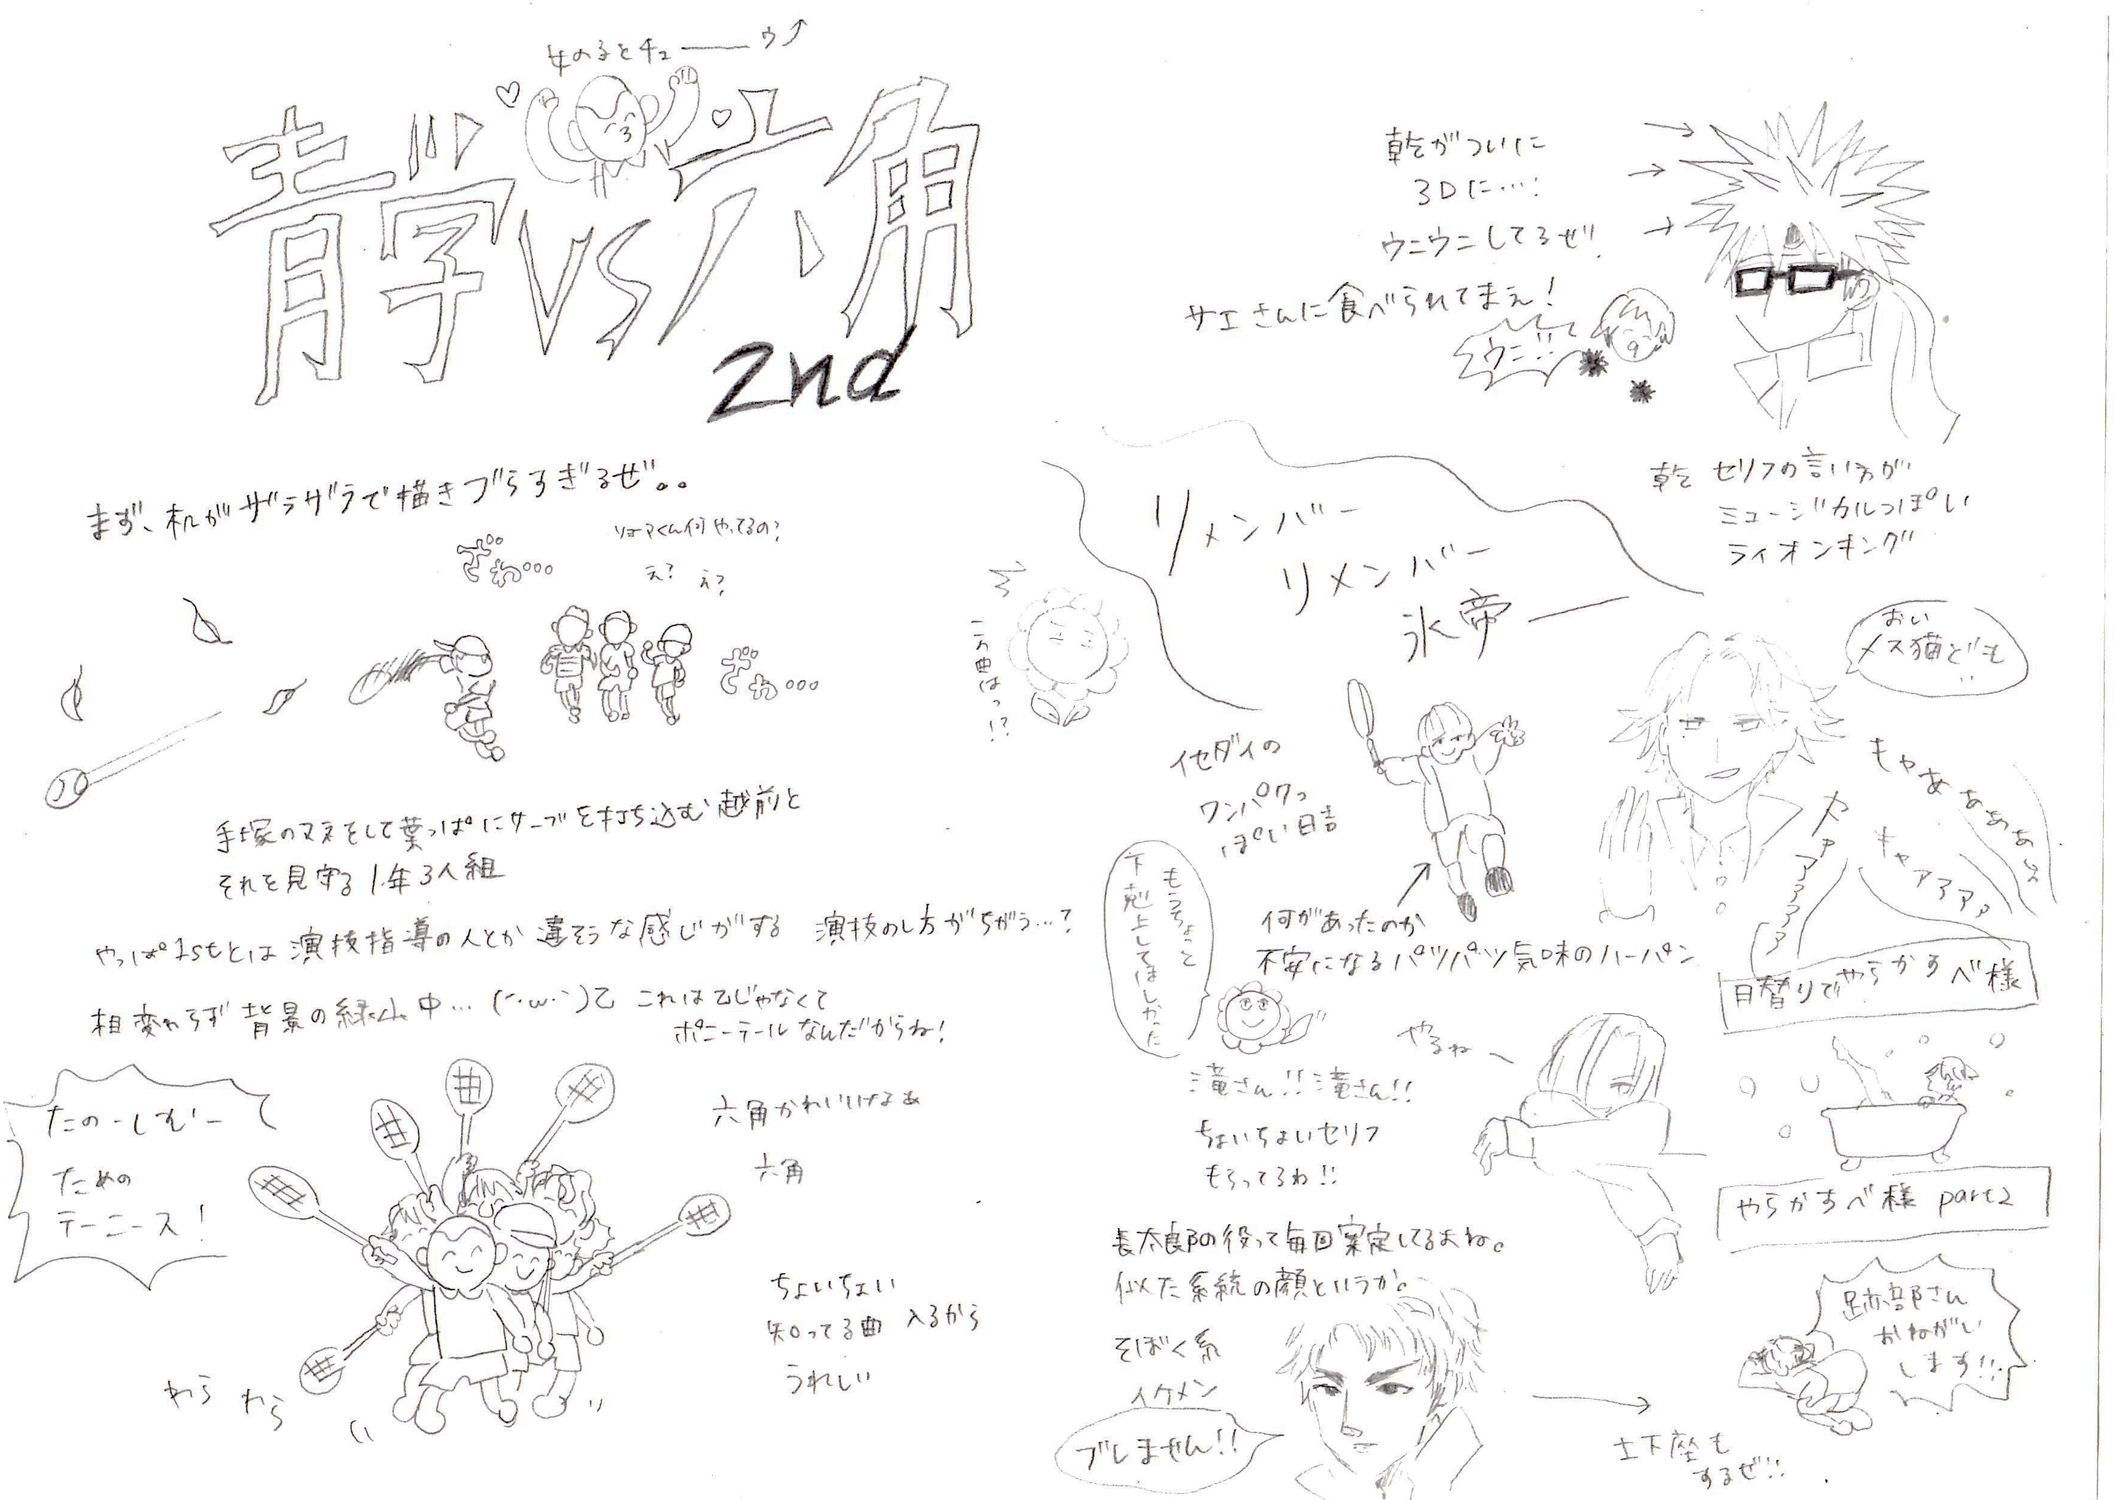 女の子とチューーウ
青学vs六角
2nd
まず、机がザラザラで描きづらすぎるぜ。。
ざわ…
リョーマくん何やってるの?
え?
え?
ざわ…
手塚のマネをして葉っぱにサーブを打ち込む越前と
それを見守る1年3人組
やっぱ1stとは演技指導の人とか違そうな感じがする 演技のし方がちがう…?
相変わらず背景の緑山中…(´・ω・`)乙 これは乙じゃなくて
ポニーテールなんだからね!
たのーしむー
ための
テーニース!
六角かわいいなあ
六角
ちょいちょい
知ってる曲 入るから
うれしい
わら わら
乾がついに
3Dに…!
ウニウニしてるぜ!
サエさんに食べられてまえ!
ウニ!!
乾 セリフの言い方が
ミュージカルっぽい
ライオンキング
リメンバー
リメンバー
氷帝ー
この曲はっ!?
おい
メス猫ども
キャああああぁ
キャァアアアァ
キャアアア
イセダイの
ワンパクっ
ぽい日吉
もうちょっと
下剋上してほしかった
何があったのか
不安になるパツパツ気味のハーパン
日替りでやらかすべ様
やるねー
滝さん!!滝さん!!
ちょいちょいセリフ
もらってるわ!!
やらかすべ様 part2
長太郎の役って毎回安定してるよね。
似た系統の顔というか。
そぼく系
イケメン
ブレません!!
跡部さん
おねがい
します!!
土下座も
するぜ!!